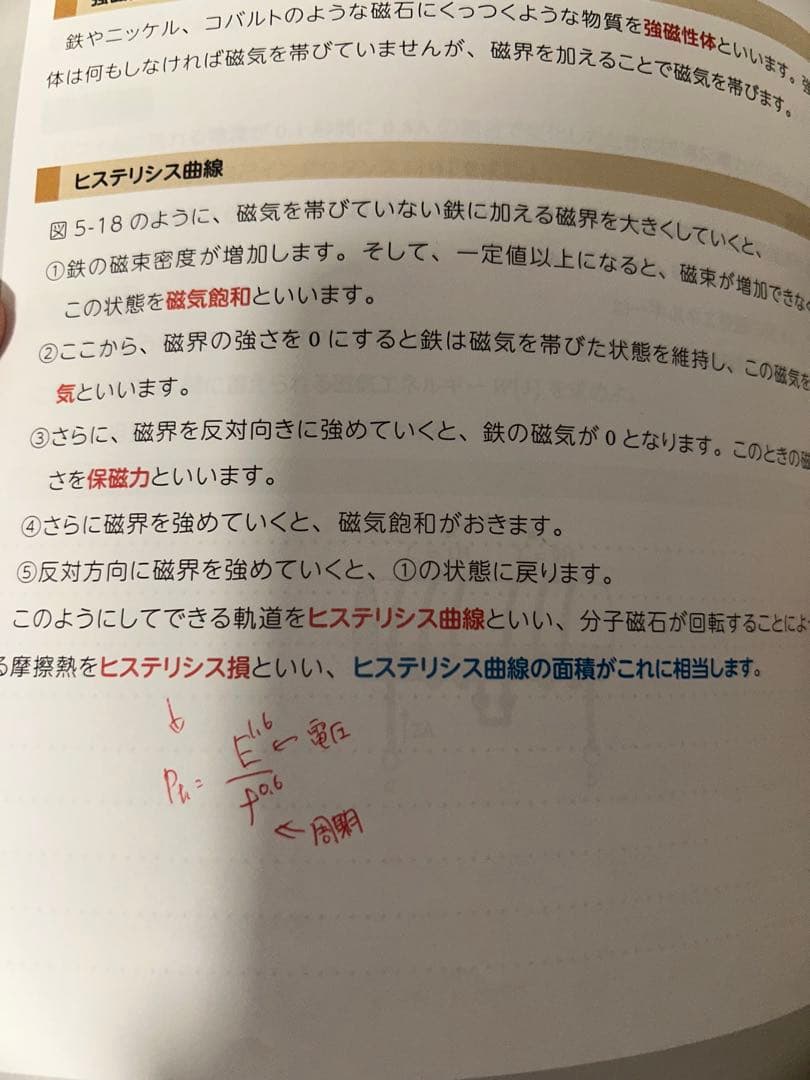 鉄やニッケル、コバルトのような磁石にくっつくような物質を強磁性体といいます。強
体は何もしなければ磁気を帯びていませんが、磁界を加えることで磁気を帯びます。
ヒステリシス曲線
図5-18のように、磁気を帯びていない鉄に加える磁界を大きくしていくと、
①鉄の磁束密度が増加します。そして、一定値以上になると、磁束が増加できなく
この状態を磁気飽和といいます。
②ここから、磁界の強さを0にすると鉄は磁気を帯びた状態を維持し、この磁気を
気といいます。
③さらに、磁界を反対向きに強めていくと、鉄の磁気が0となります。このときの磁
さを保磁力といいます。
④さらに磁界を強めていくと、磁気飽和がおきます。
⑤反対方向に磁界を強めていくと、①の状態に戻ります。
このようにしてできる軌道をヒステリシス曲線といい、分子磁石が回転することによ
る摩擦熱をヒステリシス損といい、ヒステリシス曲線の面積がこれに相当します。
↓
Ph = E^1.6 / f^0.6
← 電圧
← 周期